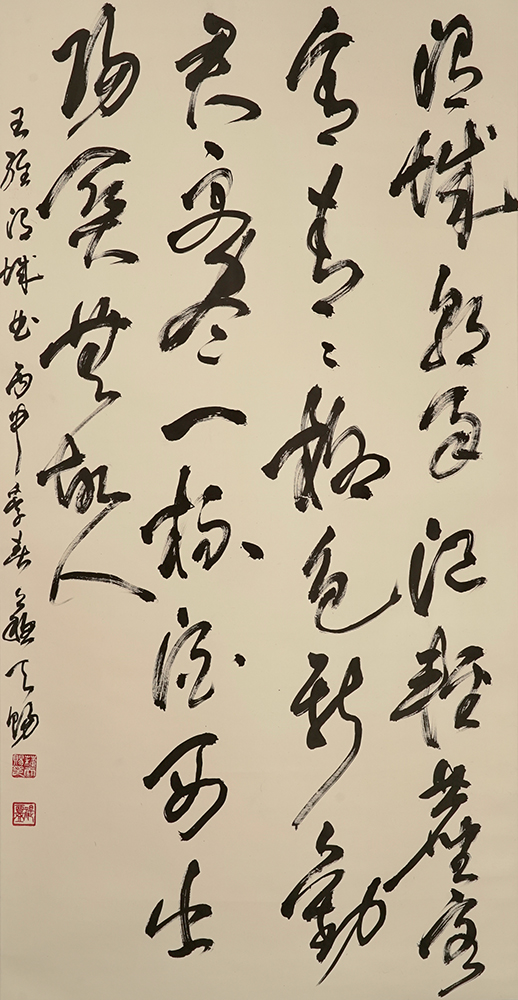 渭城朝雨浥輕塵客
舍青〻柳色新勸
君更盡一杯酒西出
陽關無故人
王維渭城曲丙申季春天賜